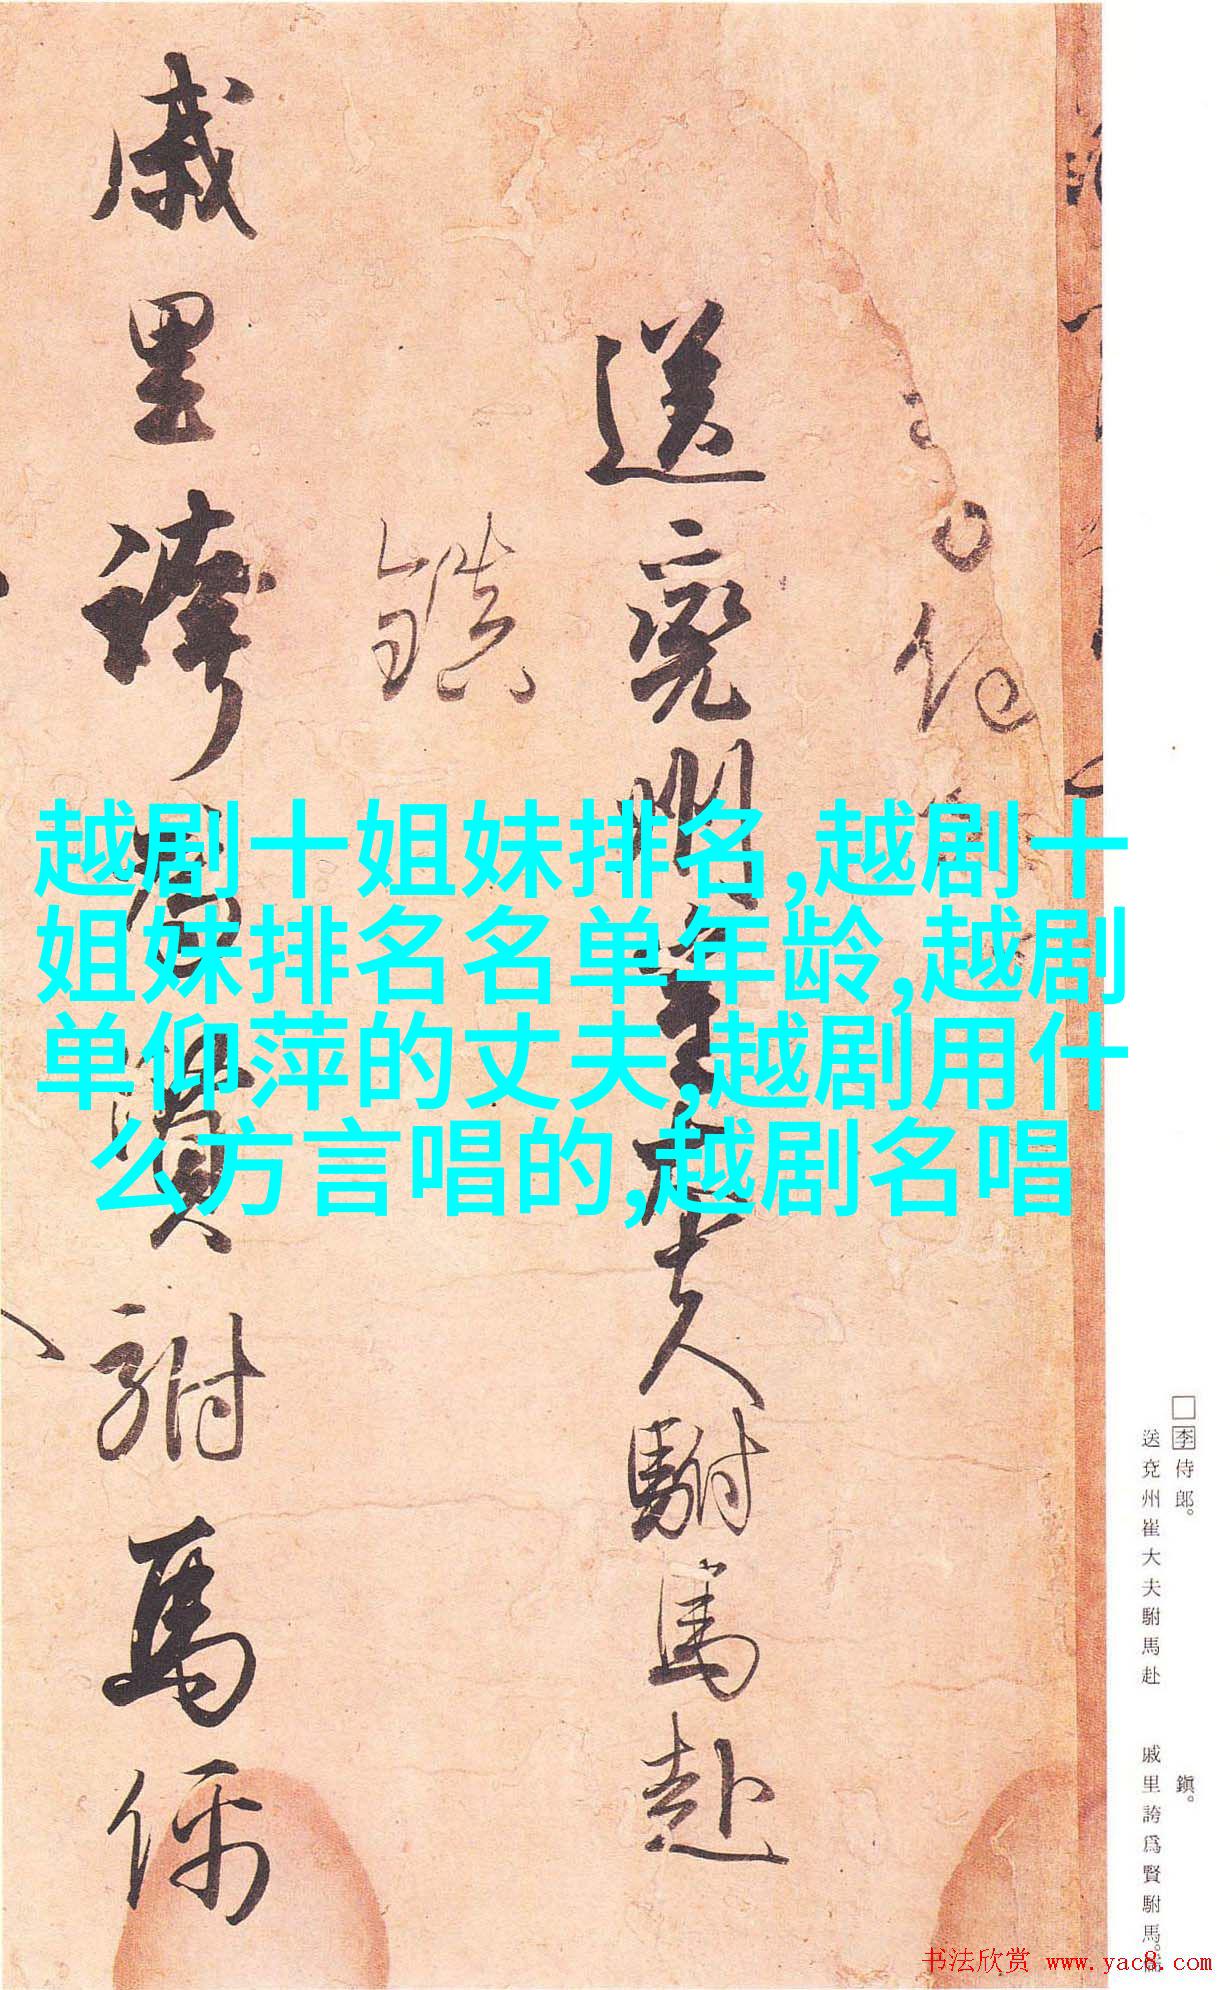 越剧十姐妹排名,越剧十
姐妹排名名单年龄,越剧
单仰萍的丈夫,越剧用什
么方言唱的,越剧名唱
送兖州崔大夫駙馬赴
鎮
戚里誇爲賢駙馬儒
□李侍郎。
送兗州崔大夫駙馬赴
鎭。
戚里誇爲賢駙馬。儒
书法欣赏 www.yac8.com